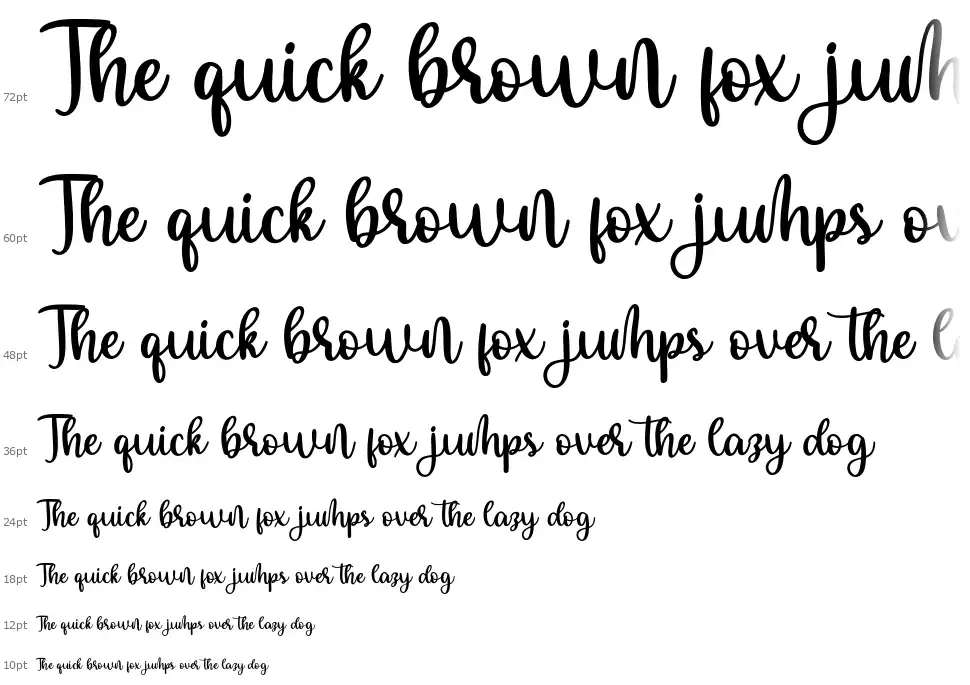 72pt The quick brown fox jum
60pt The quick brown fox jumps ov
48pt The quick brown fox jumps over the l
36pt The quick brown fox jumps over the lazy dog
24pt The quick brown fox jumps over the lazy dog
18pt The quick brown fox jumps over the lazy dog
12pt The quick brown fox jumps over the lazy dog
10pt The quick brown fox jumps over the lazy dog